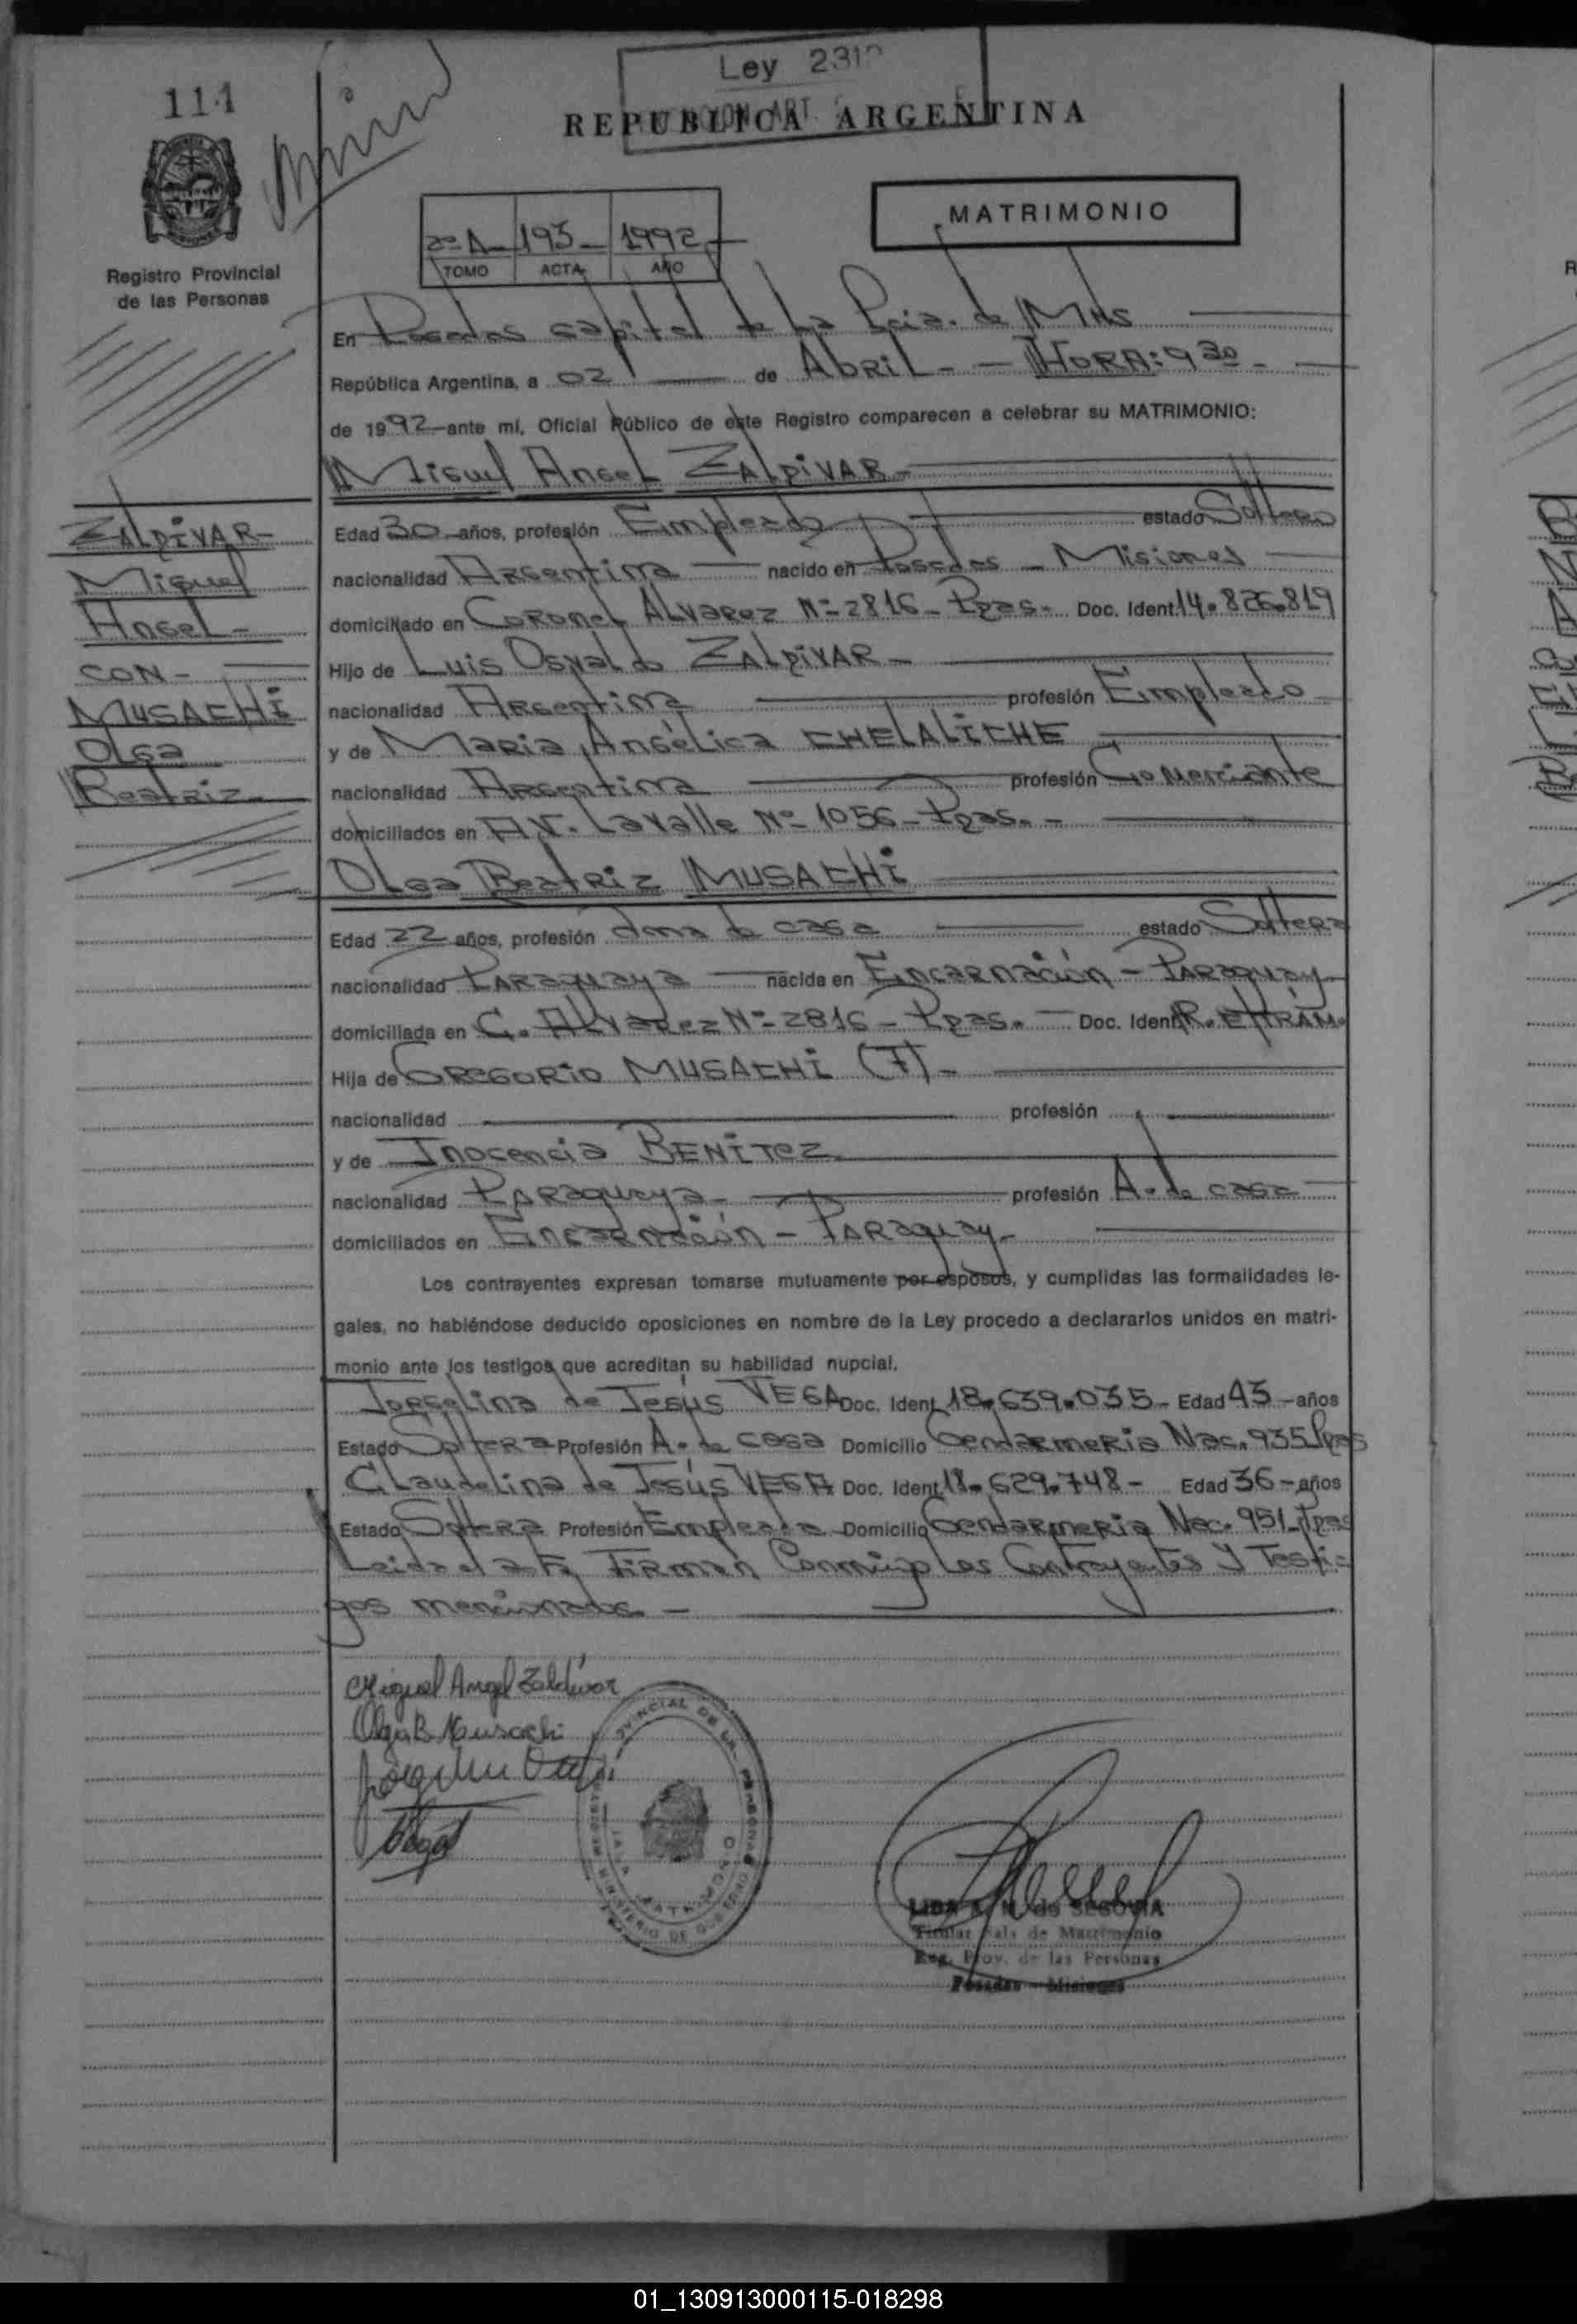 114
Ley 231
REPUBLICA ARGENTINA
MATRIMONIO
2º A - 193 - 1992
TOMO ACTA AÑO
Registro Provincial
de las Personas
En Posadas capital de La Pcia. de Mnes
República Argentina, a 02 de Abril - HORA: 9 30 -
de 1992 ante mí, Oficial Público de este Registro comparecen a celebrar su MATRIMONIO:
Miguel Angel ZALDIVAR -
Edad 30 años, profesión Empleado estado Soltero
nacionalidad Argentina nacido en Posadas - Misiones
domiciliado en Coronel Alvarez Nº 2816 - Ppas. Doc. Ident. 14.826.819
Hijo de Luis Osvaldo ZALDIVAR -
nacionalidad Argentina profesión Empleado
y de Maria Angélica CHELALICHE
nacionalidad Argentina profesión Comerciante
domiciliados en AV. Lavalle Nº 1056 - Ppas. -
Olga Beatriz MUSACHI
Edad 22 años, profesión Ama de casa estado Soltera
nacionalidad Paraguaya nacida en Encarnación - Paraguay
domiciliada en C. Alvarez Nº 2816 - Ppas. - Doc. Ident. R. en TRÁM.
Hija de Gregorio MUSACHI (F) -
nacionalidad profesión
y de Inocencia BENITEZ
nacionalidad Paraguaya - profesión A. de casa
domiciliados en Encarnación - Paraguay -
Los contrayentes expresan tomarse mutuamente por esposos, y cumplidas las formalidades le-
gales, no habiéndose deducido oposiciones en nombre de la Ley procedo a declararlos unidos en matri-
monio ante los testigos que acreditan su habilidad nupcial.
Jorgelina de Jesús VEGA Doc. Ident. 18.639.035 - Edad 43 - años
Estado Soltera Profesión A. de casa Domicilio Gendarmeria Nac. 935 Ppas
Claudelina de Jesús VEGA Doc. Ident. 18.629.748 - Edad 36 - años
Estado Soltera Profesión Empleada Domicilio Gendarmeria Nac. 951 - Ppas
Leida el acta Firman Conmigo los Contrayentes y Testi-
gos mencionados -
ZALDIVAR -
Miguel
Angel -
CON -
MUSACHI
Olga
Beatriz -
Miguel Angel Zaldivar
Olga B. Musachi
Vega
LIDA N. de SEGOVIA
Titular Sala de Matrimonio
Reg. Prov. de las Personas
Posadas - Misiones
01_130913000115-018298